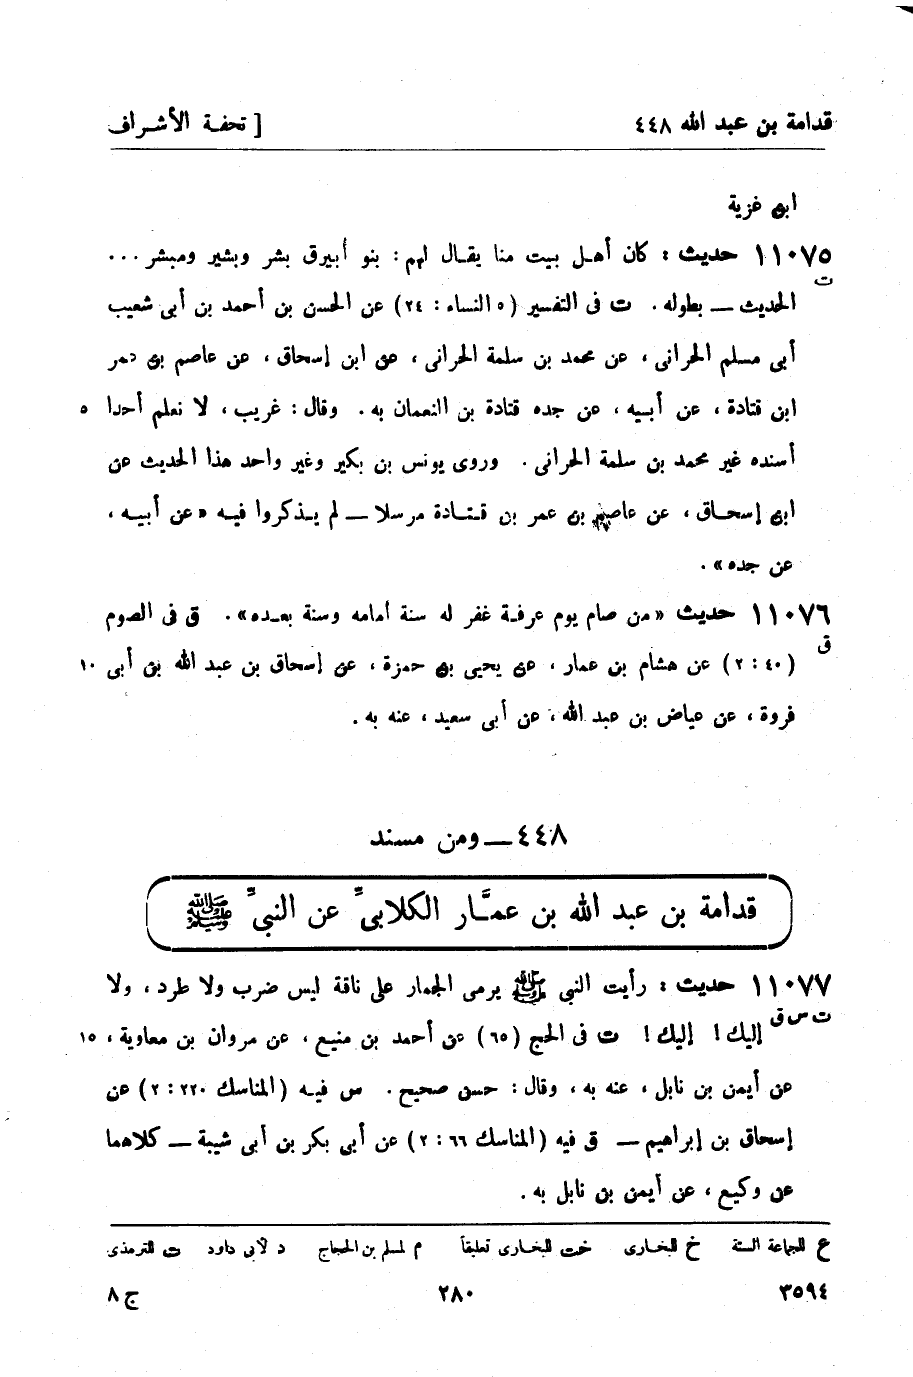 قدامة بن عبد الله ٤٤٨ [ تحفة الأشراف
ابن غزية
١١٠٧٥ حديث : كان أهل بيت منا يقال لهم : بنو أبيرق بشر وبشير ومبشر ...
ت
الحديث — بطوله . ت فى التفسير ( ٥ النساء : ٢٤ ) عن الحسن بن أحمد بن أبى شعيب
أبى مسلم الحرانى ، عن محمد بن سلمة الحرانى ، عن ابن إسحاق ، عن عاصم بن عمر
ابن قتادة ، عن أبيه ، عن جده قتادة بن النعمان به . وقال : غريب ، لا نعلم أحدا ٥
أسنده غير محمد بن سلمة الحرانى . وروى يونس بن بكير وغير واحد هذا الحديث عن
ابن إسحاق ، عن عاصم بن عمر بن قتادة مرسلا — لم يذكروا فيه « عن أبيه ،
عن جده » .
١١٠٧٦ حديث « من صام يوم عرفة غفر له سنة أمامه وسنة بعده » . ق فى الصوم
ق
( ٤٠ : ٢ ) عن هشام بن عمار ، عن يحيى بن حمزة ، عن إسحاق بن عبد الله بن أبى ١٠
فروة ، عن عياض بن عبد الله ، عن أبى سعيد ، عنه به .
٤٤٨ — ومن مسند
قدامة بن عبد الله بن عمَّار الكلابىِّ عن النبىِّ ﷺ
١١٠٧٧ حديث : رأيت النبى ﷺ يرمى الجمار على ناقة ليس ضرب ولا طرد ، ولا
ت س ق
إليك ! إليك ! ت فى الحج ( ٦٥ ) عن أحمد بن منيع ، عن مروان بن معاوية ، ١٥
عن أيمن بن نابل ، عنه به ، وقال : حسن صحيح . س فيه ( المناسك ٢٢٠ : ٢ ) عن
إسحاق بن إبراهيم — ق فيه ( المناسك ٦٦ : ٢ ) عن أبى بكر بن أبى شيبة — كلاهما
عن وكيع ، عن أيمن بن نابل به .
ع للجماعة الستة خ للبخارى خت للبخارى تعليقاً م لمسلم بن الحجاج د لأبى داود ت للترمذى
٣٥٩٤ ٢٨٠ ج ٨